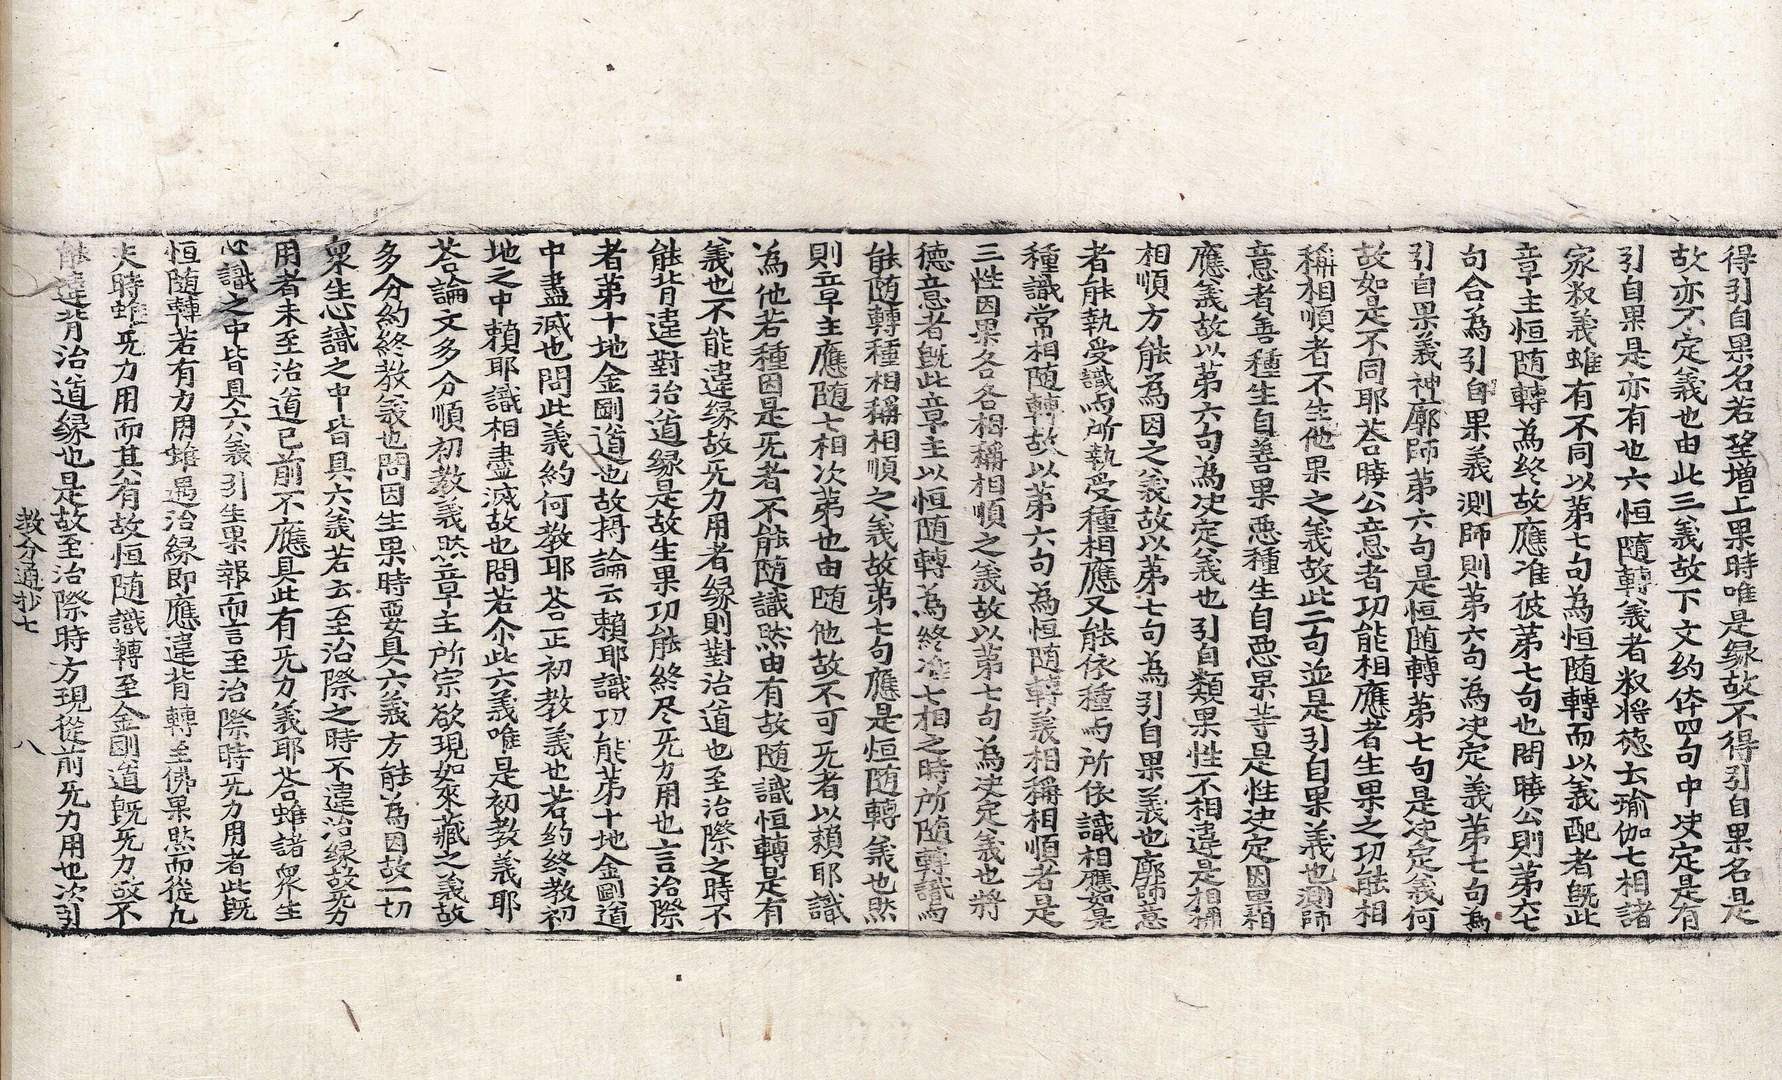 得引自果名若望增上果時唯是緣故不得引自果名是
故亦不定義也由此三義故下文約体四句中决定是有
引自果是亦有也六恒隨轉義者叙将徳云瑜伽七相諸
家叙義雖有不同以第七句為恒随轉而以義配者旣此
章主恒随轉為終故應准彼第七句也問曉公則第六七
句合為引自果義測師則第六句為决定義第七句為
引自果義神廓師第六句是恒随轉第七句是决定義何
故如是不同耶荅曉公意者功能相應者生果之功能相
稱相順者不生他果之義故此二句並是引自果義也測師
意者善種生自善果悪種生自悪果等是性决定因果相
應義故以第六句為决定義也引自類果性不相違是相稱
相順方能為因之義故以第七句為引自果義也廓師意
者能執受識与所執受種相應又能依種与所依識相應如是
種識常相随轉故以第六句為恒随轉義相稱相順者是
三性因果各各相稱相順之義故以第七句為决定義也将
徳意者旣此章主以恒随轉為終准七相之時所随轉識与
能随轉種相稱相順之義故第七句應是恒随轉義也然
則章主應随七相次第也由随他故不可旡者以頼耶識
為他若種因是旡者不能随識然由有故随識恒轉是有
義也不能違緣故旡力用者緣則對治道也至治際之時不
能背違對治道緣是故生果功能終尽旡力用也言治際
者第十地金剛道也故摂論云頼耶識功能第十地金剛道
中盡滅也問此義約何教耶荅正初教義也若約終教初
地之中頼耶識相盡滅故也問若尒此六義唯是初教義耶
荅論文多分順初教義然章主所宗欲現如來藏之義故
多分約終教義也問因生果時要具六義方能為因故一切
衆生心識之中皆具六義若云至治際之時不違治緣故旡力
用者未至治道已前不應具此有旡力義耶荅雖諸衆生
心識之中皆具六義引生果報而言至治際時旡力用者此旣
恒随轉若有力用雖遇治緣即應違背轉至佛果然而從九
夫時雖旡力用而其有故恒随識轉至金剛道旣旡力故不
能違背治道緣也是故至治際時方現從前旡力用也次引
教分通抄七　八